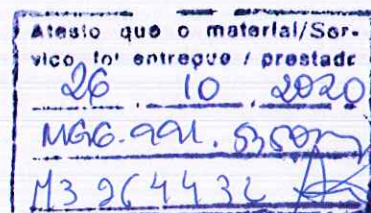 Atesto que o material/Ser-
vico foi entregue / prestado
26 10 2020
MGG.991.
M3 964432